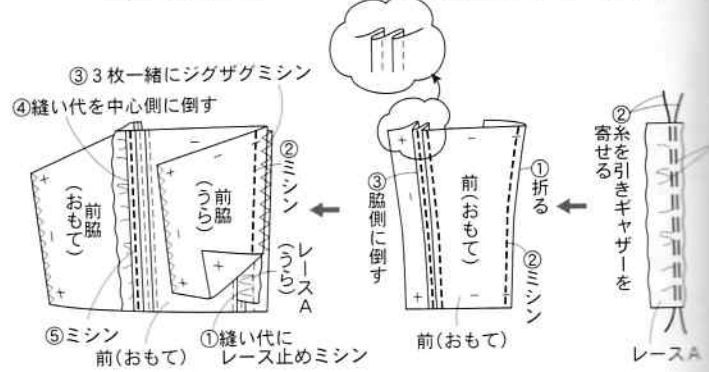 ③3枚一緒にジグザグミシン
④縫い代を中心側に倒す
②ミシン
前脇
(おもて)
前脇
(うら)
レースA
(うら)
⑤ミシン
前(おもて)
①縫い代に
レース止めミシン
①折る
前(おもて)
③脇側に倒す
②ミシン
前(おもて)
②糸を引きギャザーを
寄せる
レースA